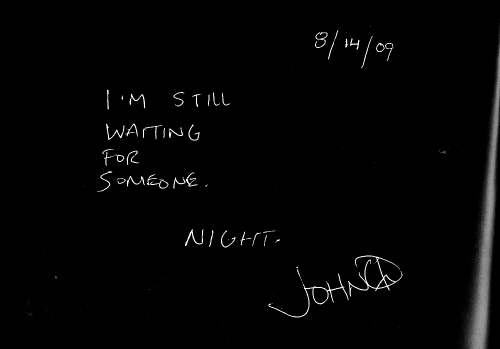 8/14/09
I'M STILL
WAITING
FOR
SOMEONE.
NIGHT.
JOHN